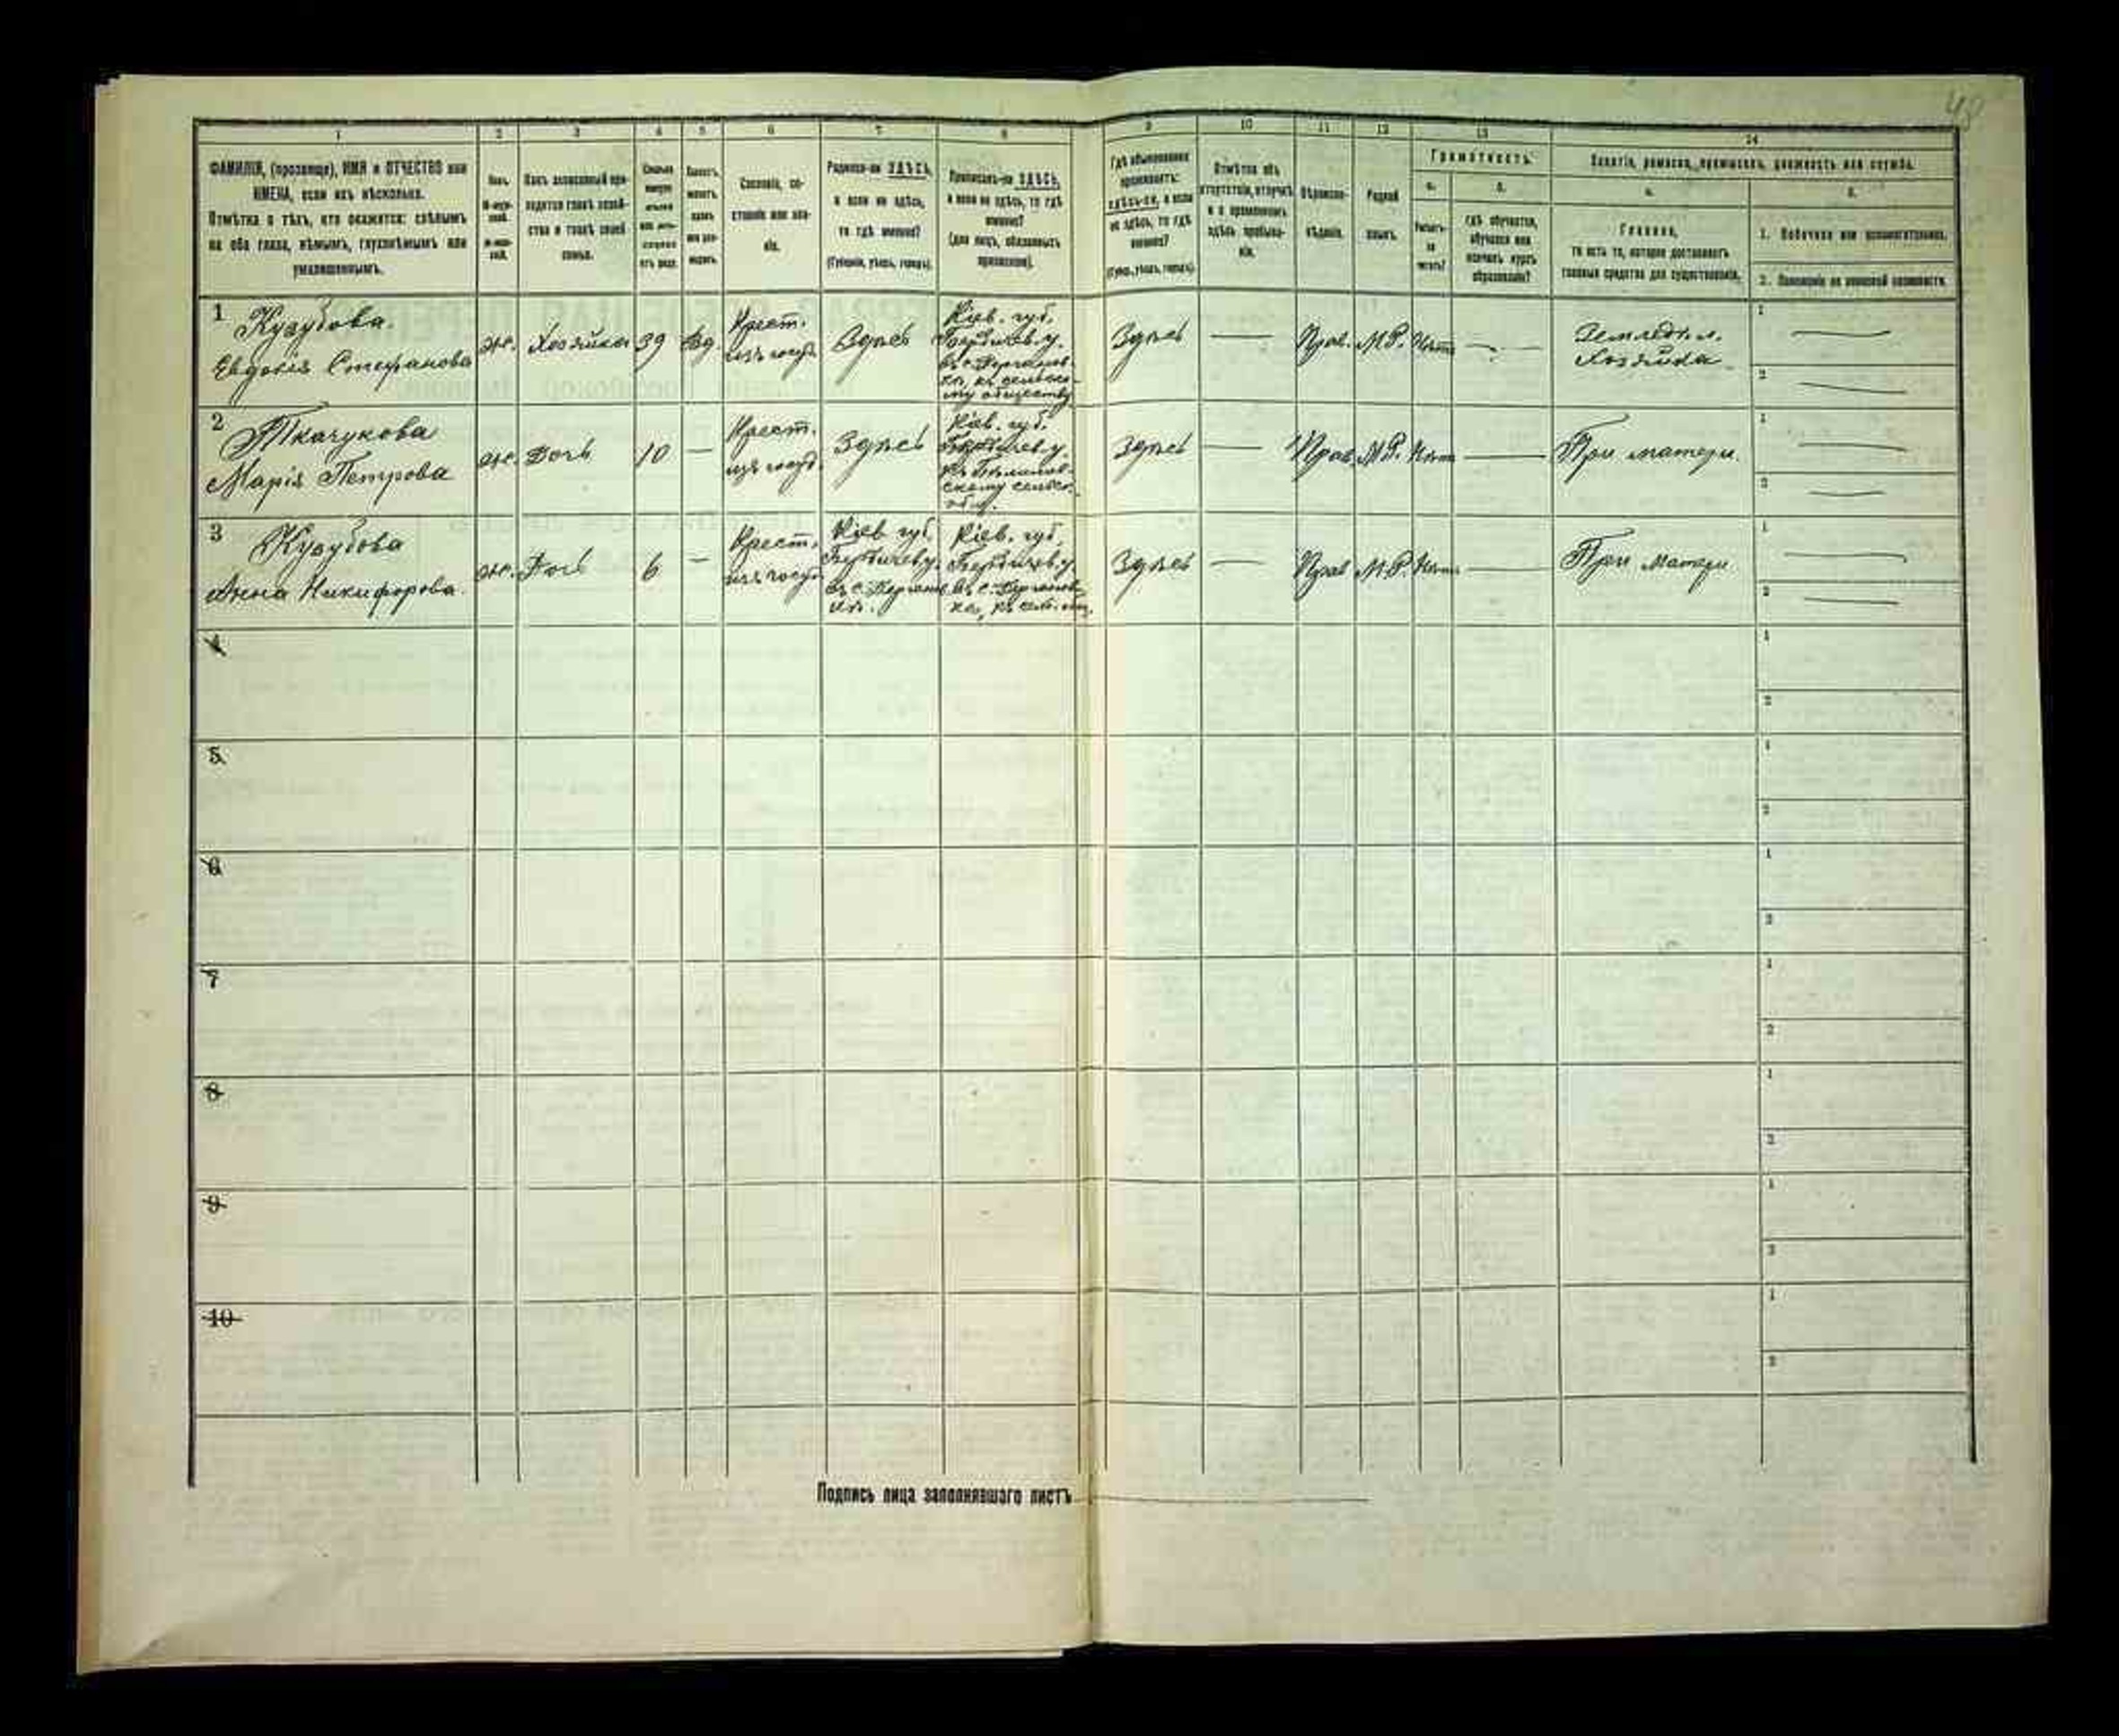 48
1
2
3
4
5
6
7
8
9
10
11
12
13
14
ФАМИЛІЯ, (прозвище), ИМЯ и ОТЧЕСТВО или
ИМЕНА, если ихъ нѣсколько.
Отмѣтка о тѣхъ, кто окажется: слѣпымъ
на оба глаза, нѣмымъ, глухонѣмымъ или
умалишеннымъ.
Какъ записанный при-
ходится главѣ хозяй-
ства и главѣ своей
семьи.
Сословіе, со-
стояніе или зва-
ніе.
Родился-ли ЗДѢСЬ,
а если не здѣсь,
то гдѣ именно?
(Губернія, уѣздъ, городъ).
Приписанъ-ли ЗДѢСЬ,
а если не здѣсь, то гдѣ
именно?
(для лицъ, обязанныхъ
припискою).
Гдѣ обыкновенно
проживаетъ:
здѣсь-ли, а если
не здѣсь, то гдѣ
именно?
(Губер., уѣздъ, городъ).
Отмѣтка объ
отсутствіи, отлучкѣ
и о временномъ
здѣсь пребыва-
ніи.
Вѣроиспо-
вѣданіе.
Родной
языкъ.
Грамотность.
а.
Умѣетъ-
ли
читать?
б.
гдѣ обучается,
обучался или
кончилъ курсъ
образованія?
Занятіе, ремесло, промыселъ, должность или служба.
а.
Главное,
то есть то, которое доставляетъ
главныя средства для существованія.
б.
1. Побочное или вспомогательное.
2. Положеніе по воинской повинности.
1 Кузубова
Евдокія Стефанова
ж. Хозяйка 39 Вд.
Крест.
изъ госуд.
Здѣсь
Кіев. губ.
Бердичев. у.
Здѣсь — Прав. М.Р. Нѣтъ —
Земледѣл.
Хозяйка
1 —
2 —
2 Ткачукова
Марія Петрова
ж. Дочь 10 —
Крест.
изъ госуд.
Здѣсь
Кіев. губ.
Бердичев. у.
Здѣсь — Прав. М.Р. Нѣтъ —
При матери.
1 —
2 —
3 Кузубова
Анна Никифорова.
ж. Дочь 6 —
Крест.
изъ госуд.
Кіев. губ.
Бердичев. у.
Кіев. губ.
Бердичев. у.
Здѣсь — Прав М.Р. Нѣтъ —
При матери
1 —
2 —
4
1
2
5
1
2
6
1
2
7
1
2
8
1
2
9
1
2
10
1
2
Подпись лица заполнявшаго листъ